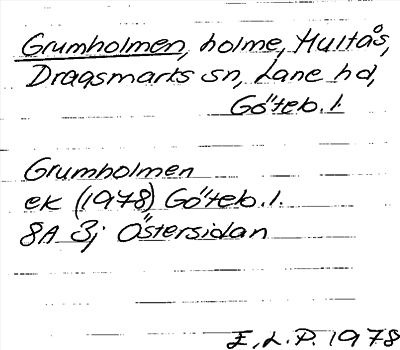 Grumholmen, holme, Hultås,
Dragsmarks sn, Lane hd,
Göteb. l.
Grumholmen
ek (1978) Göteb. l.
8A 3j Östersidan
E.L.P. 1978